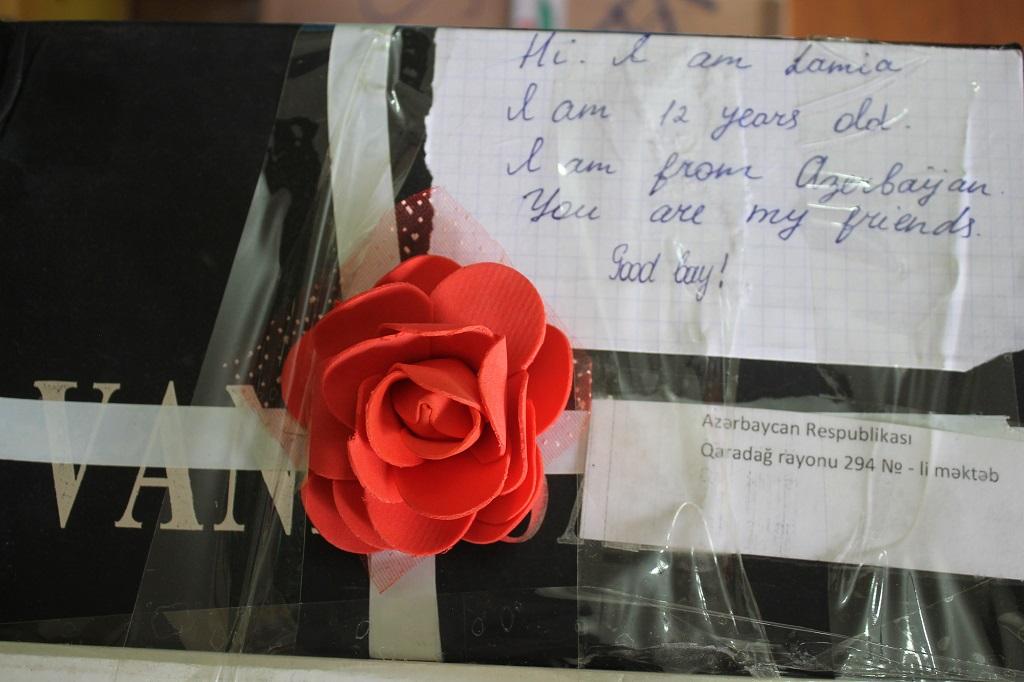 Hi. I am Lamia
I am 12 years old.
I am from Azerbaijan.
You are my friends.
Good bay!
VAN
Azərbaycan Respublikası
Qaradağ rayonu 294 № - li məktəb